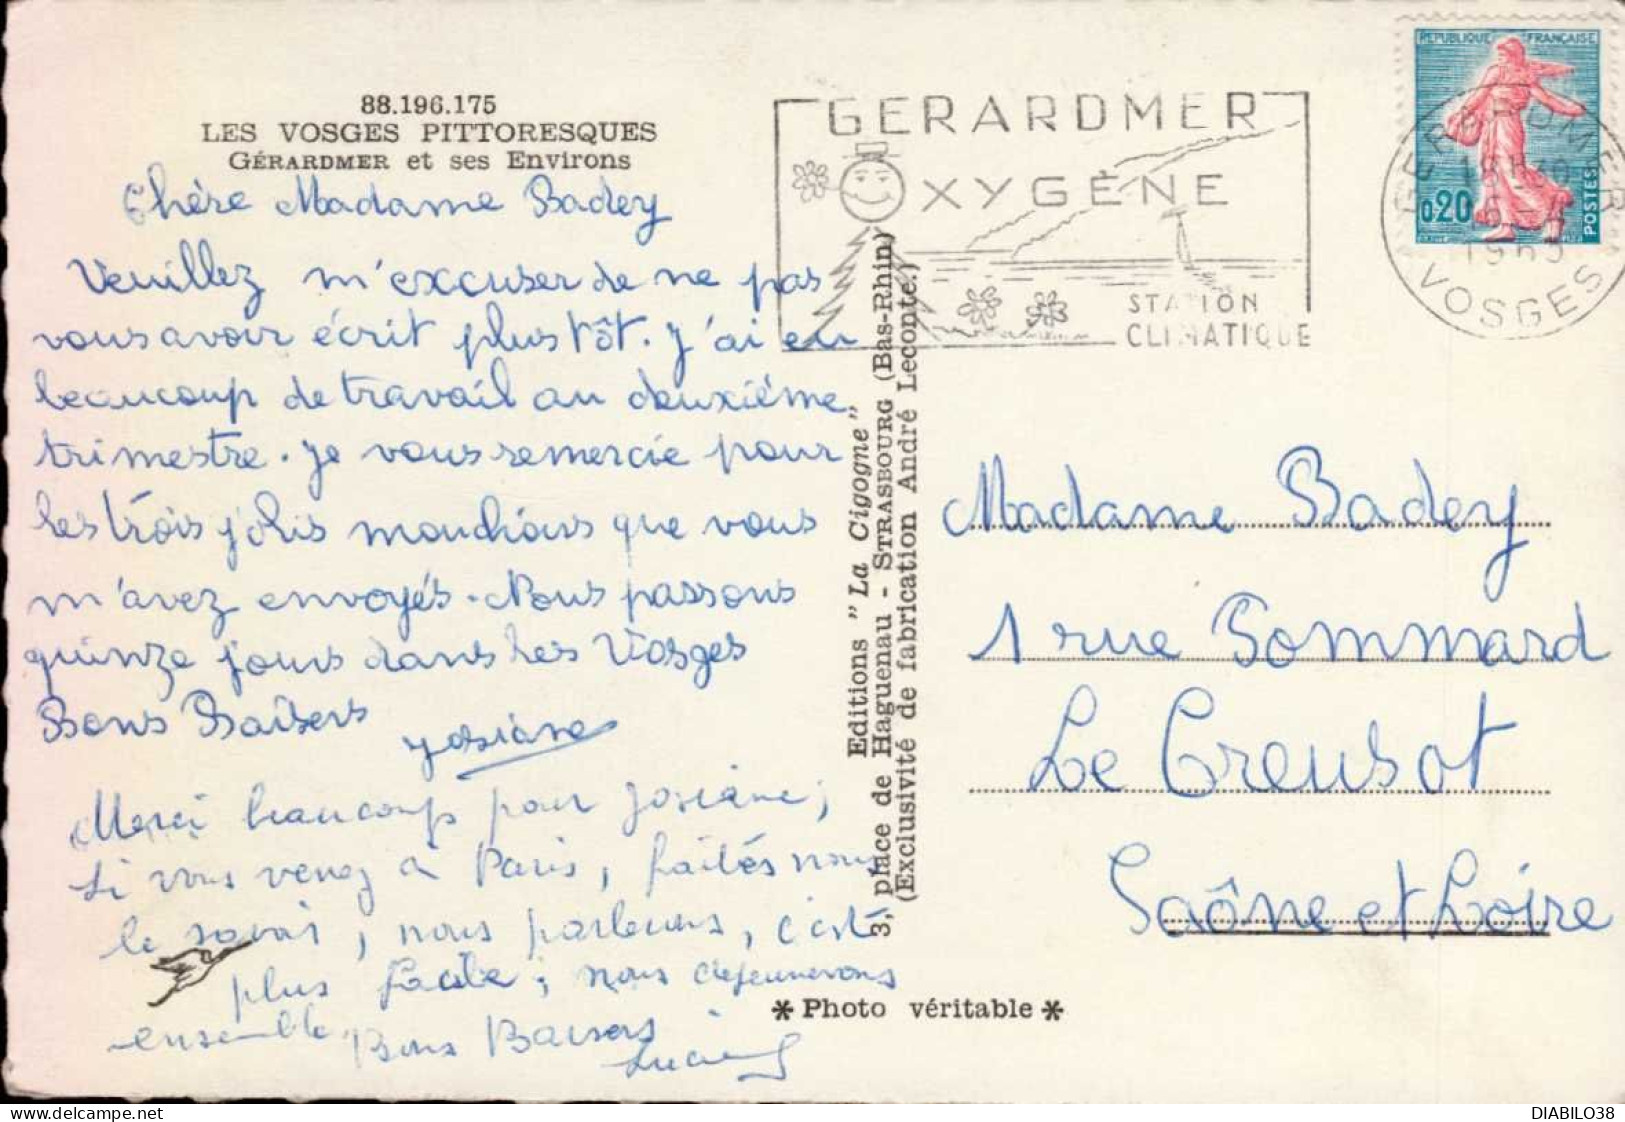 88.196.175
LES VOSGES PITTORESQUES
GÉRARDMER et ses Environs
Chère Madame Badey
Veuillez m'excuser de ne pas
vous avoir écrit plus tôt. J'ai eu
beaucoup de travail au deuxième
trimestre. Je vous remercie pour
les trois jolis mouchoirs que vous
m'avez envoyés. Nous passons
quinze jours dans les Vosges
Bons Baisers
Josiane
Merci beaucoup pour Josiane,
si vous venez à Paris, faites nous
le savoir, nous parlerons, c'est
plus facile, nous déjeunerons
ensemble. Bons Baisers
Editions "La Cigogne"
3, place de Haguenau - STRASBOURG (Bas-Rhin)
(Exclusivité de fabrication André Leconte.)
* Photo véritable *
GERARDMER
OXYGÈNE
STATION
CLIMATIQUE
REPUBLIQUE FRANCAISE
0,20
POSTES
GERARDMER
VOSGES
Madame Badey
1 rue Pommard
Le Creusot
Saône et Loire
DIABILO38
www.delcampe.net